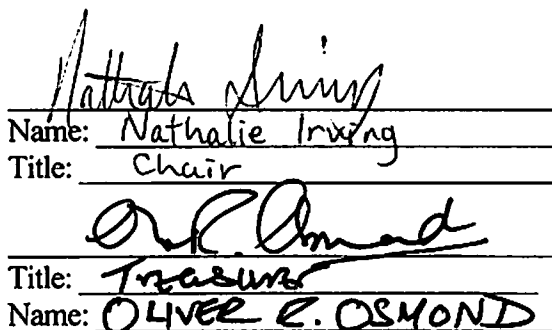 Nathalie Irving
Name: Nathalie Irving
Title: Chair
O. R. Osmond
Title: Treasurer
Name: OLIVER R. OSMOND